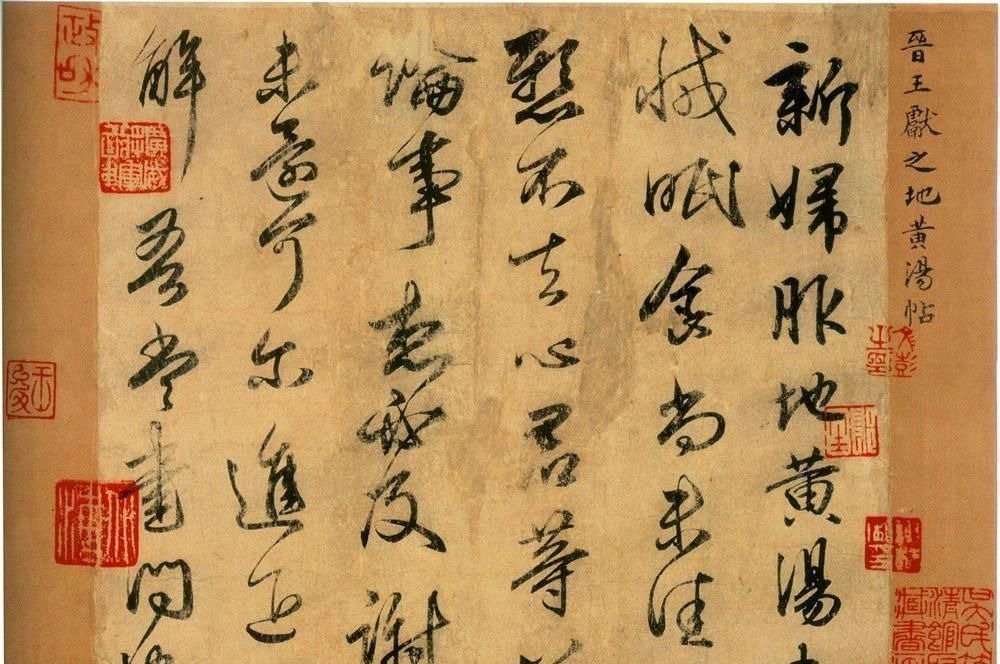 晉王獻之地黃湯帖
新婦服地黃湯
減眠食尚未佳
懸不去心君等
論事想必及謝
未還可尔進退
解吾當書問